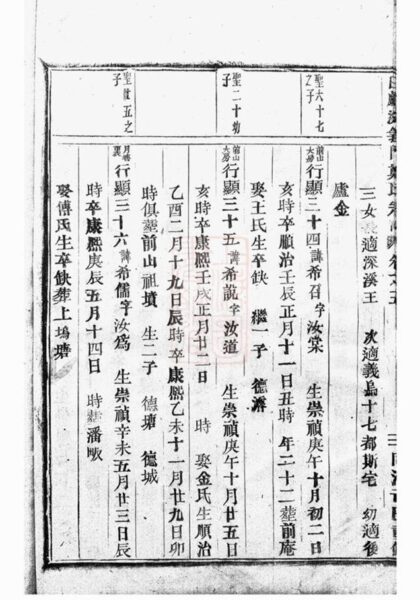 三女長適深溪王 次適義烏十七都斯宅 幼適後
盧金
聖六十七之子
前山大房 行顯三十四 諱希召字汝棠 生崇禎庚午十月初二日
亥時卒順治壬辰正月十一日丑時 年二十二葬前庵
娶王氏生卒缺 繼一子 德濬
聖二十幼子
前山大房 行顯三十五 諱希說字汝道 生崇禎庚午十月廿五日
亥時卒康熙壬戌正月廿二日 時 娶金氏生順治
乙酉二月十九日辰時卒康熙乙未十一月廿九日卯
時俱葬前山祖墳 生二子 德 德城
聖廿五之子
行顯三十六 諱希儒字汝為 生崇禎辛未五月廿三日辰
時卒康熙庚辰五月十四日 時葬潘畈
娶傅氏生卒缺葬上塢塘